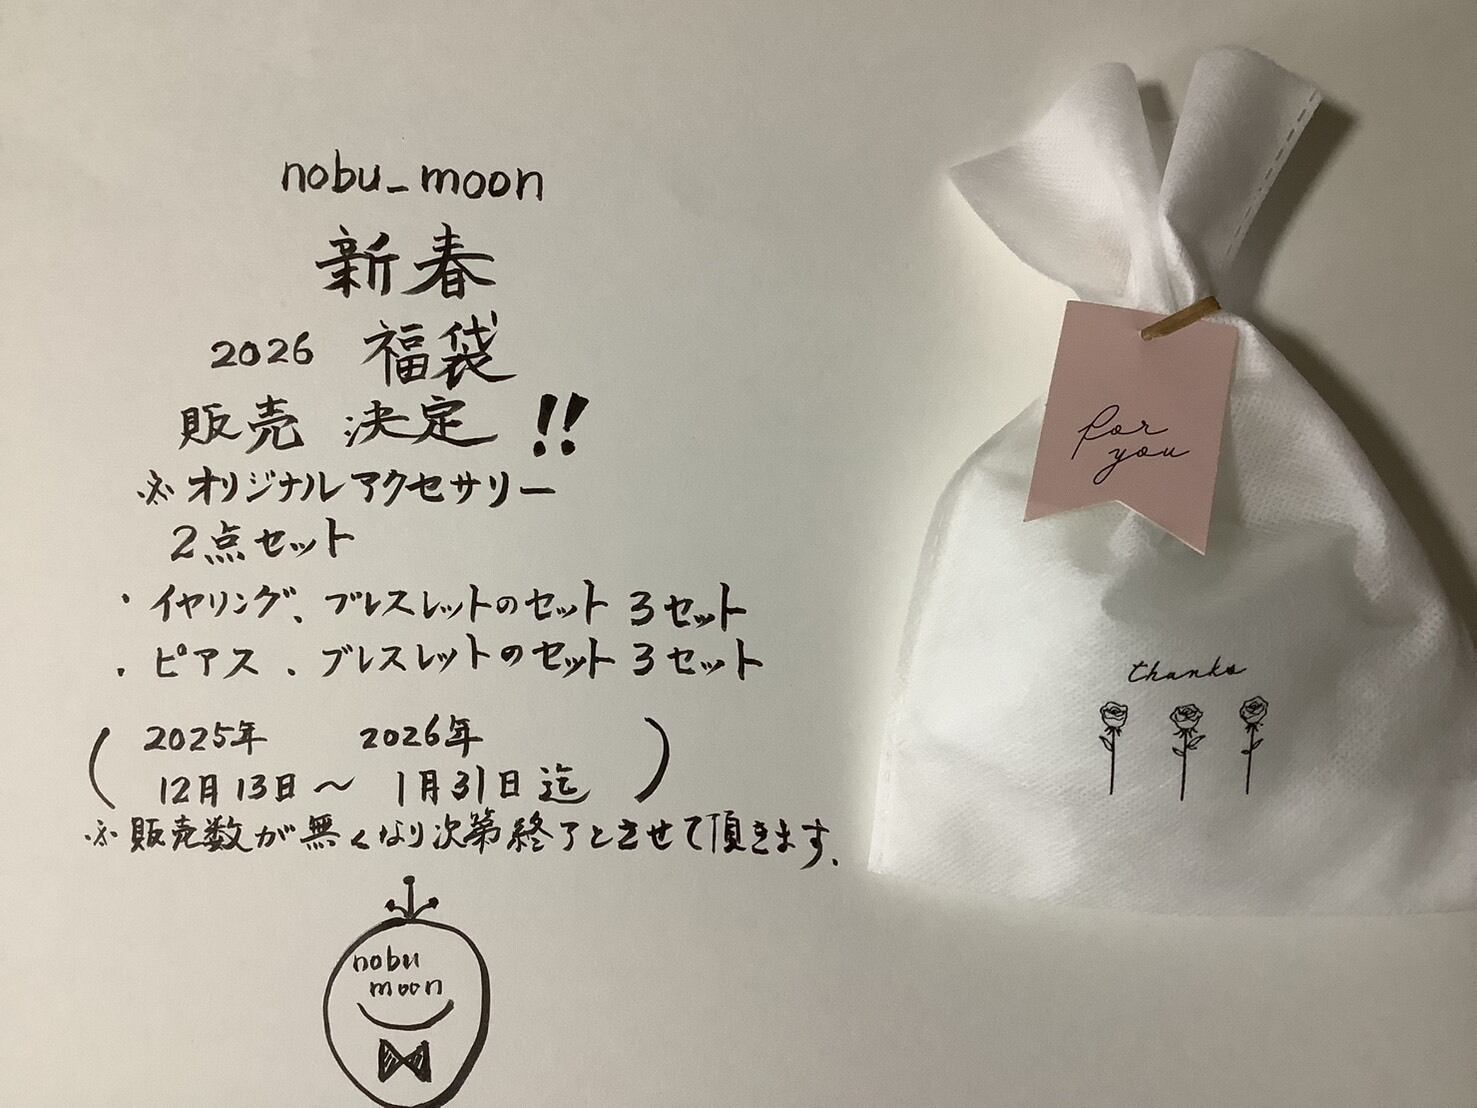 nobu_moon
新春
2026 福袋
販売 決定 !!
※オリジナルアクセサリー
2点セット
・イヤリング、ブレスレットのセット 3セット
・ピアス、ブレスレットのセット 3セット
( 2025年 2026年 )
12月13日〜 1月31日迄
※販売数が無くなり次第終了とさせて頂きます、
nobu
moon
for
you
thanks